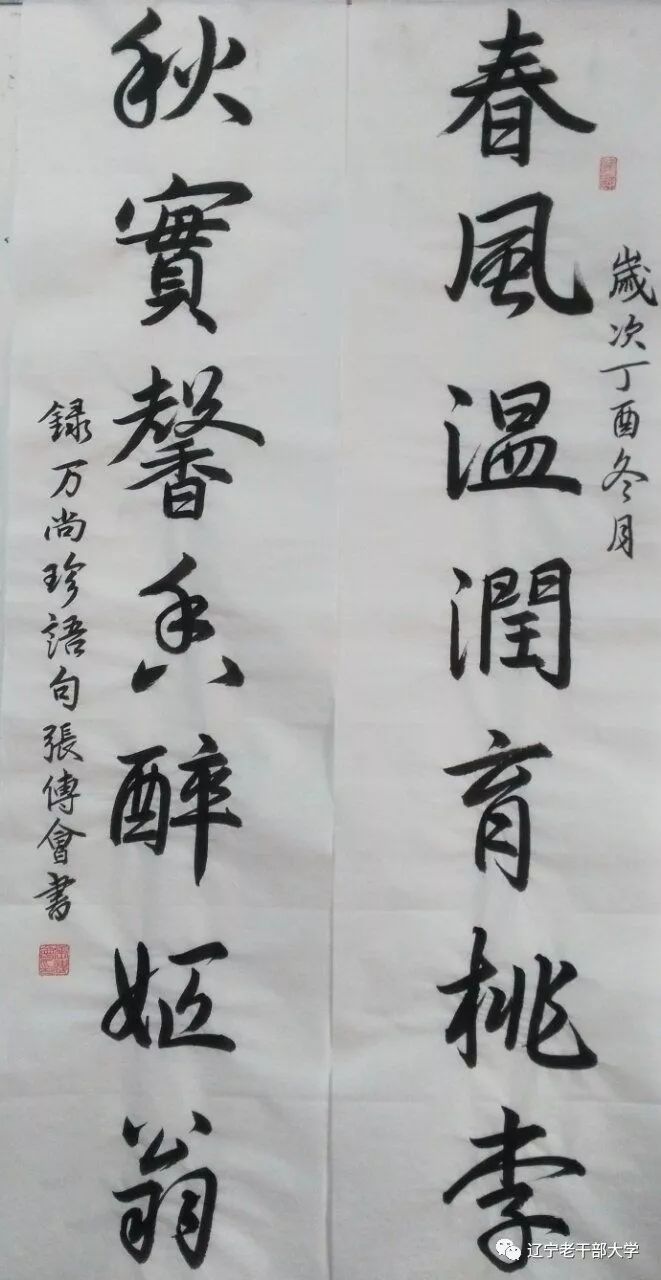 春風温潤育桃李
歲次丁酉冬月
秋實馨香醉姬翁
録万尚珍語句張傳會書
辽宁老干部大学